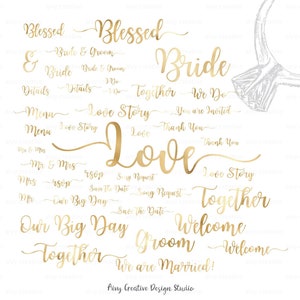 Blessed Blessed
& Bride & Groom Bride
Bride Bride & Groom
Details Details I Do We Do
We Do Together
Menu Love Story You are Invited
Menu Love Story Thank You
Mr & Mrs Love Thank You
Mr & Mrs
Mrs rsvp Song Request
Mrs rsvp Save The Date Song Request
Mr Save The Date Together
Mr Save The Date
Our Big Day Welcome
Groom Welcome
Together We are Married!
Amy Creative Design Studio